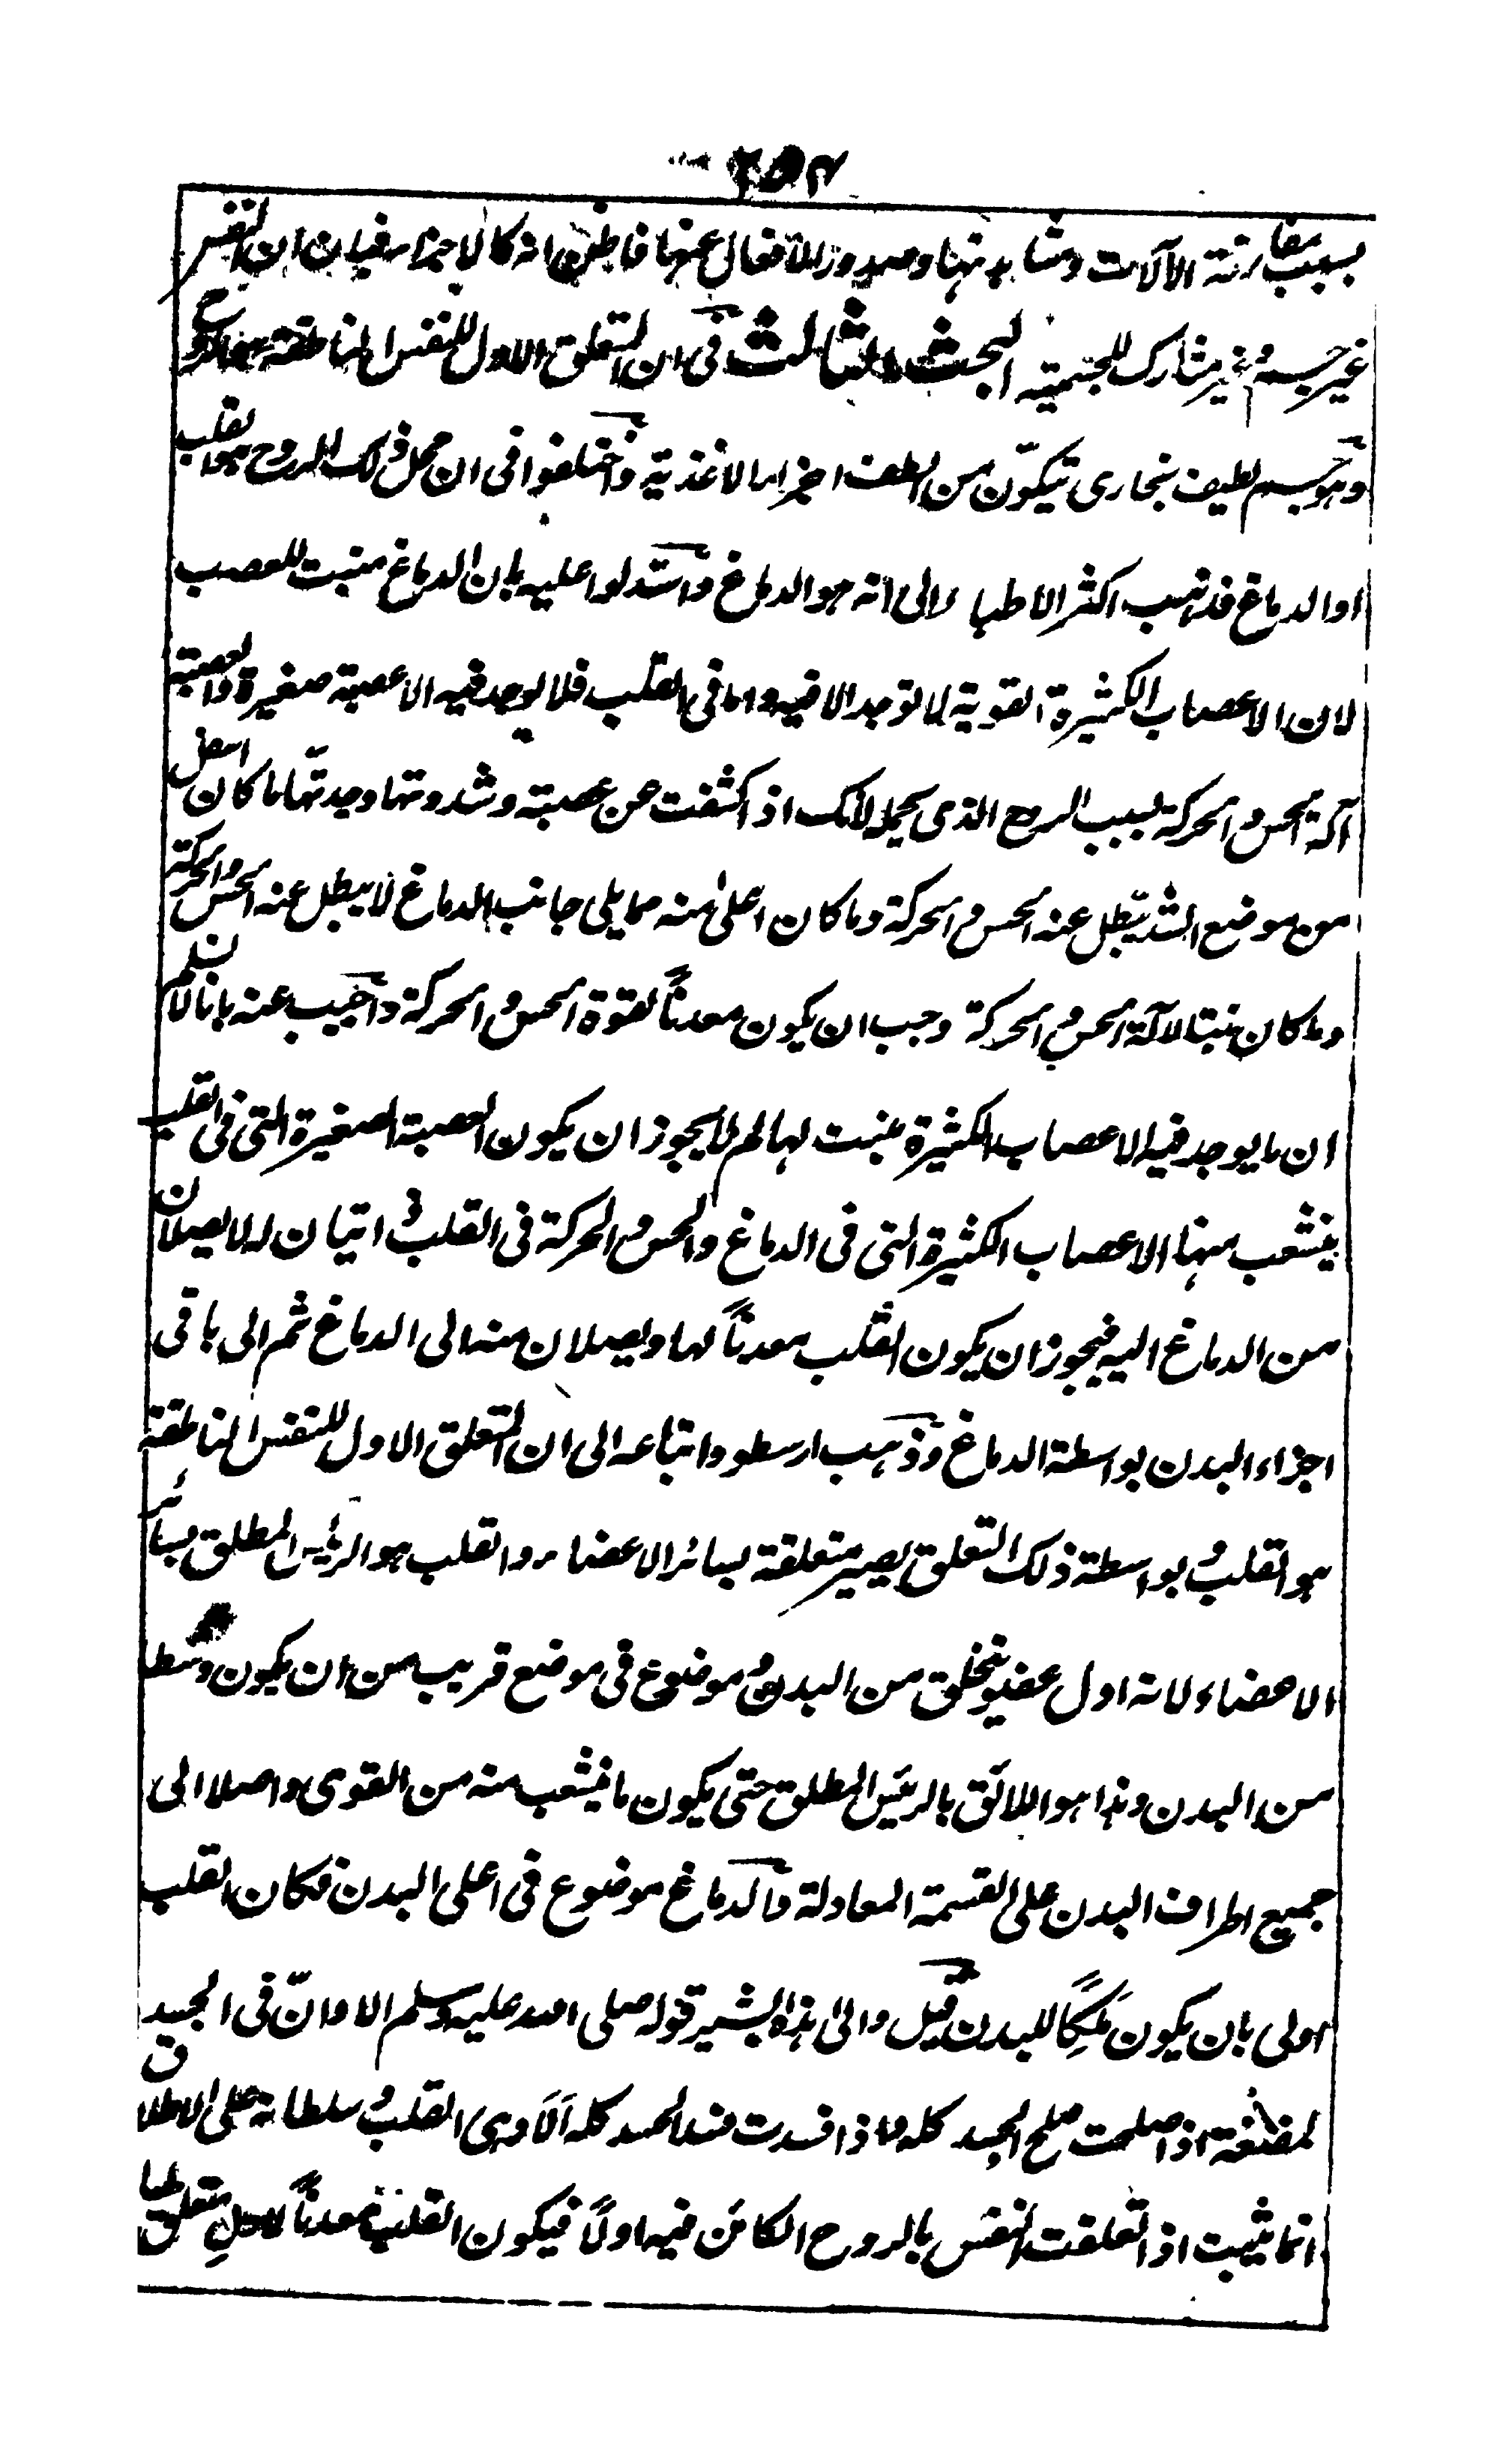 بسبب مقارنة الآلات ومشابهتها وصدور الافعال عنها فاظن انه كالاجزاء فبان ان النفس
غير جسم وغير مشارك للجسمية البحث الثالث فى ان التعلق الاول للنفس الناطقة بالروح
وهو جسم لطيف بخارى يتكون من الطف اجزاء الاغذية واختلفوا فى ان محل ذلك الروح هو القلب
او الدماغ فذهب اكثر الاطباء الى انه هو الدماغ واستدلوا عليه بان الدماغ منبت للعصب
لان الاعصاب الكثيرة القوية لا توجد الا فيه واما فى القلب فلا يوجد فيه الا عصبة صغيرة والعصبة
آلة الحس والحركة بسبب الروح الذى يحملا لانك اذا كشفت عن عصبة وشددتها وجدتّ ما كان اسفل
من موضع الشد يبطل عنه الحس والحركة وما كان اعلى منه مما يلى جانب الدماغ لا يبطل عنه الحس والحركة
وما كان منبتا لآلة الحس والحركة وجب ان يكون معدناً لقوة الحس والحركة واجيب عنه بانا لا نسلم
ان ما يوجد فيه الاعصاب الكثيرة منبت لها لم لا يجوز ان يكون العصبة الصغيرة التى فى القلب
ينشعب منها الاعصاب الكثيرة التى فى الدماغ والحس والحركة فى القلب ذاتيان له لا يصلان
من الدماغ اليه فيجوز ان يكون القلب معدناً لها ويصلان منه الى الدماغ ثم الى باقى
اجزاء البدن بواسطة الدماغ وذهب ارسطو واتباعه الى ان التعلق الاول للنفس الناطقة
هو القلب وبواسطة ذلك التعلق يصير متعلقة بسائر الاعضاء والقلب هو الرئيس المطلق بسائر
الاعضاء لانه اول عضو يتخلق من البدن وموضوع فى موضع قريب من ان يكون وسطا
من البدن وهذا هو اللائق بالرئيس المطلق حتى يكون ما ينشعب منه من القوى واصلا الى
جميع اطراف البدن على القسمة المعادلة والدماغ موضوع فى اعلى البدن فكان القلب
اولى بان يكون مَلِكاً للبدن قيل والى هذا يشير قوله صلى الله عليه وسلم الا وانّ فى الجسد
لمضغة اذا صلحت صلح الجسد كله واذا فسدت فسد الجسد كله اَلَا وهى القلب وسلطانه على الاطلاق
انما يثبت اذا تعلقت النفس بالروح الكائن فيه اولاً فيكون القلب معدناً لاول متعلق لها